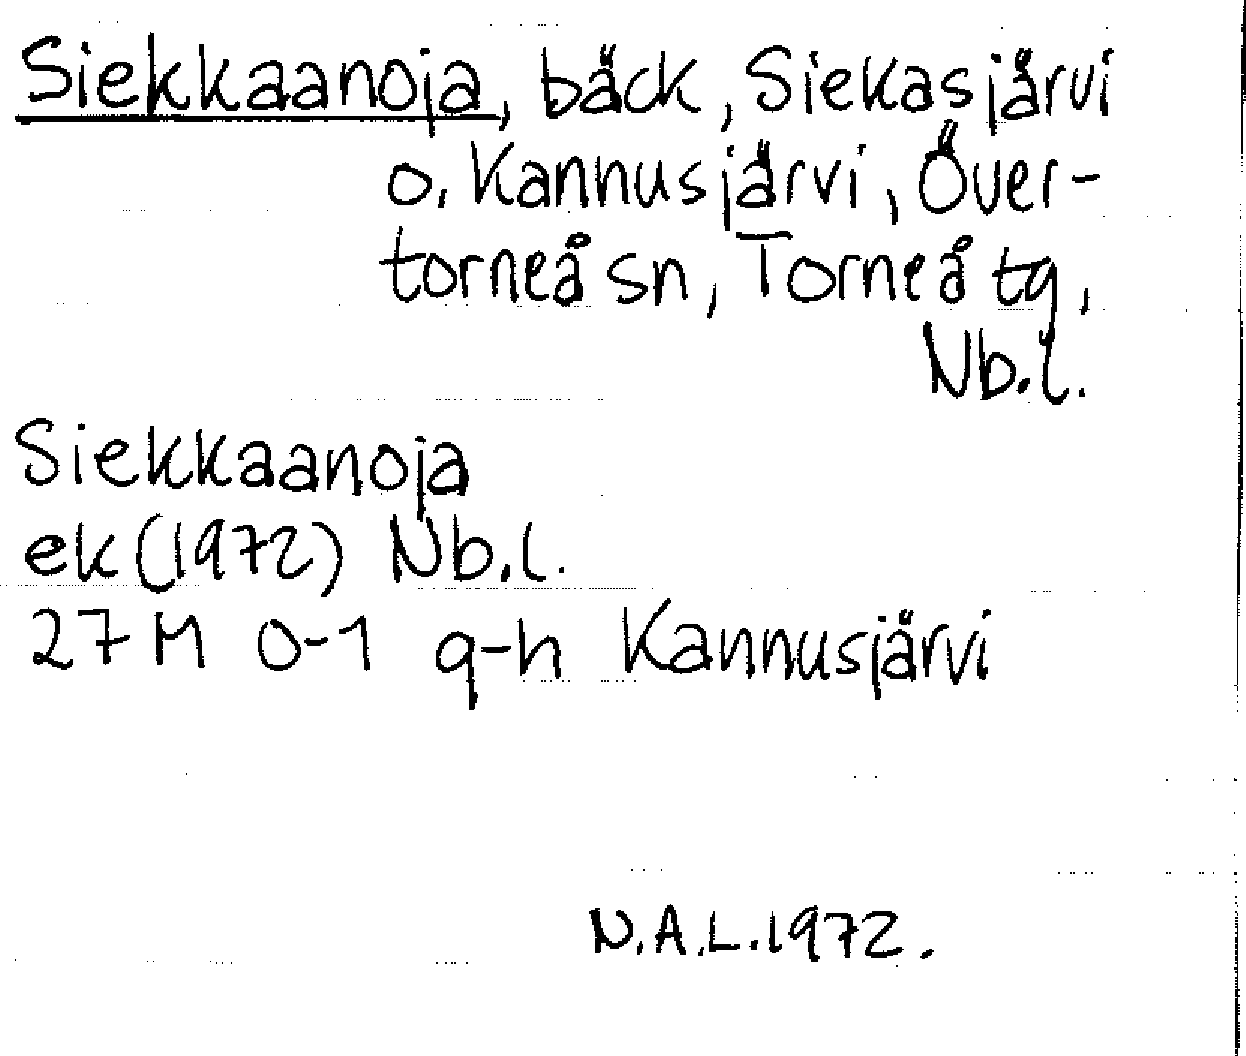 Siekkaanoja, bäck, Siekasjärvi
o. Kannusjärvi, Över-
torneå sn, Torneå tg,
Nb.l.
Siekkaanoja
ek (1972) Nb.l.
27M 0-1 g-h Kannusjärvi
N.A.L. 1972.